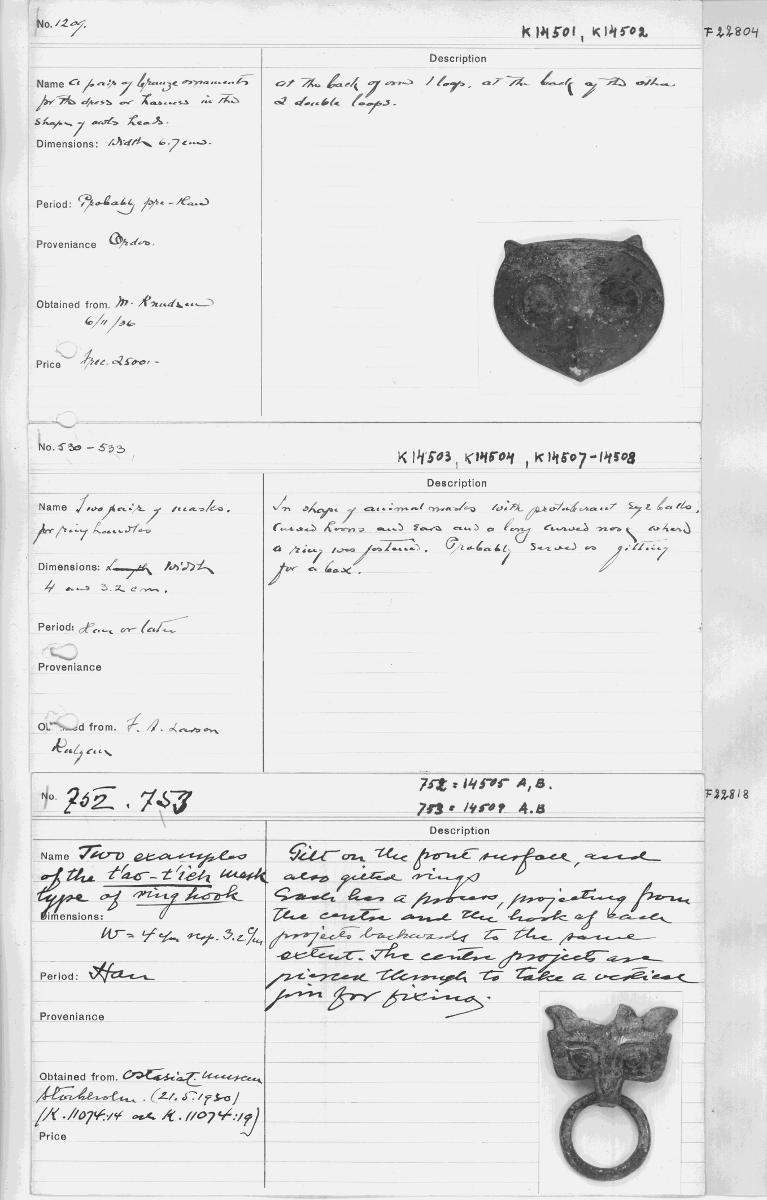 No. 1209. K14501, K14502 F22804
Description
Name a pair of bronze ornaments
for the dress or harness in the
shape of owls heads.
at the back of one 1 loop, at the back of the other
2 double loops.
Dimensions: Width 6.7 cm.
Period: Probably pre-Han
Proveniance Ordos.
Obtained from. M. Knudsen
6/11/36
Price
No. 530-533 K14503, K14504, K14507-14508
Description
Name Two pair of masks.
for ring handles
In shape of animal masks with protuberant eye balls,
curved horns and ears and a long curved nose, where
a ring was fastened. Probably served as fitting
for a box.
Dimensions: Length Width
4 and 3.2 cm.
Period: Han or later
Proveniance
Obtained from. F. A. Larson
Kalgan
No. 752. 753 752 = 14505 A, B.
753 = 14509 A.B
F22818
Description
Name Two examples
of the t'ao-t'ieh mask
type of ring hook
Gilt on the front surface, and
also gilted rings
Each has a process, projecting from
the centre and the hook of each
projects backwards to the same
extent. The centre projects are
pierced through to take a vertical
pin for fixing.
Dimensions:
W = 4 c/m resp. 3.2 c/m
Period: Han
Proveniance
Obtained from. Ostasiat. Museum
Stockholm. (21.5.1930)
(K.11074:14 och K.11074:19)
Price